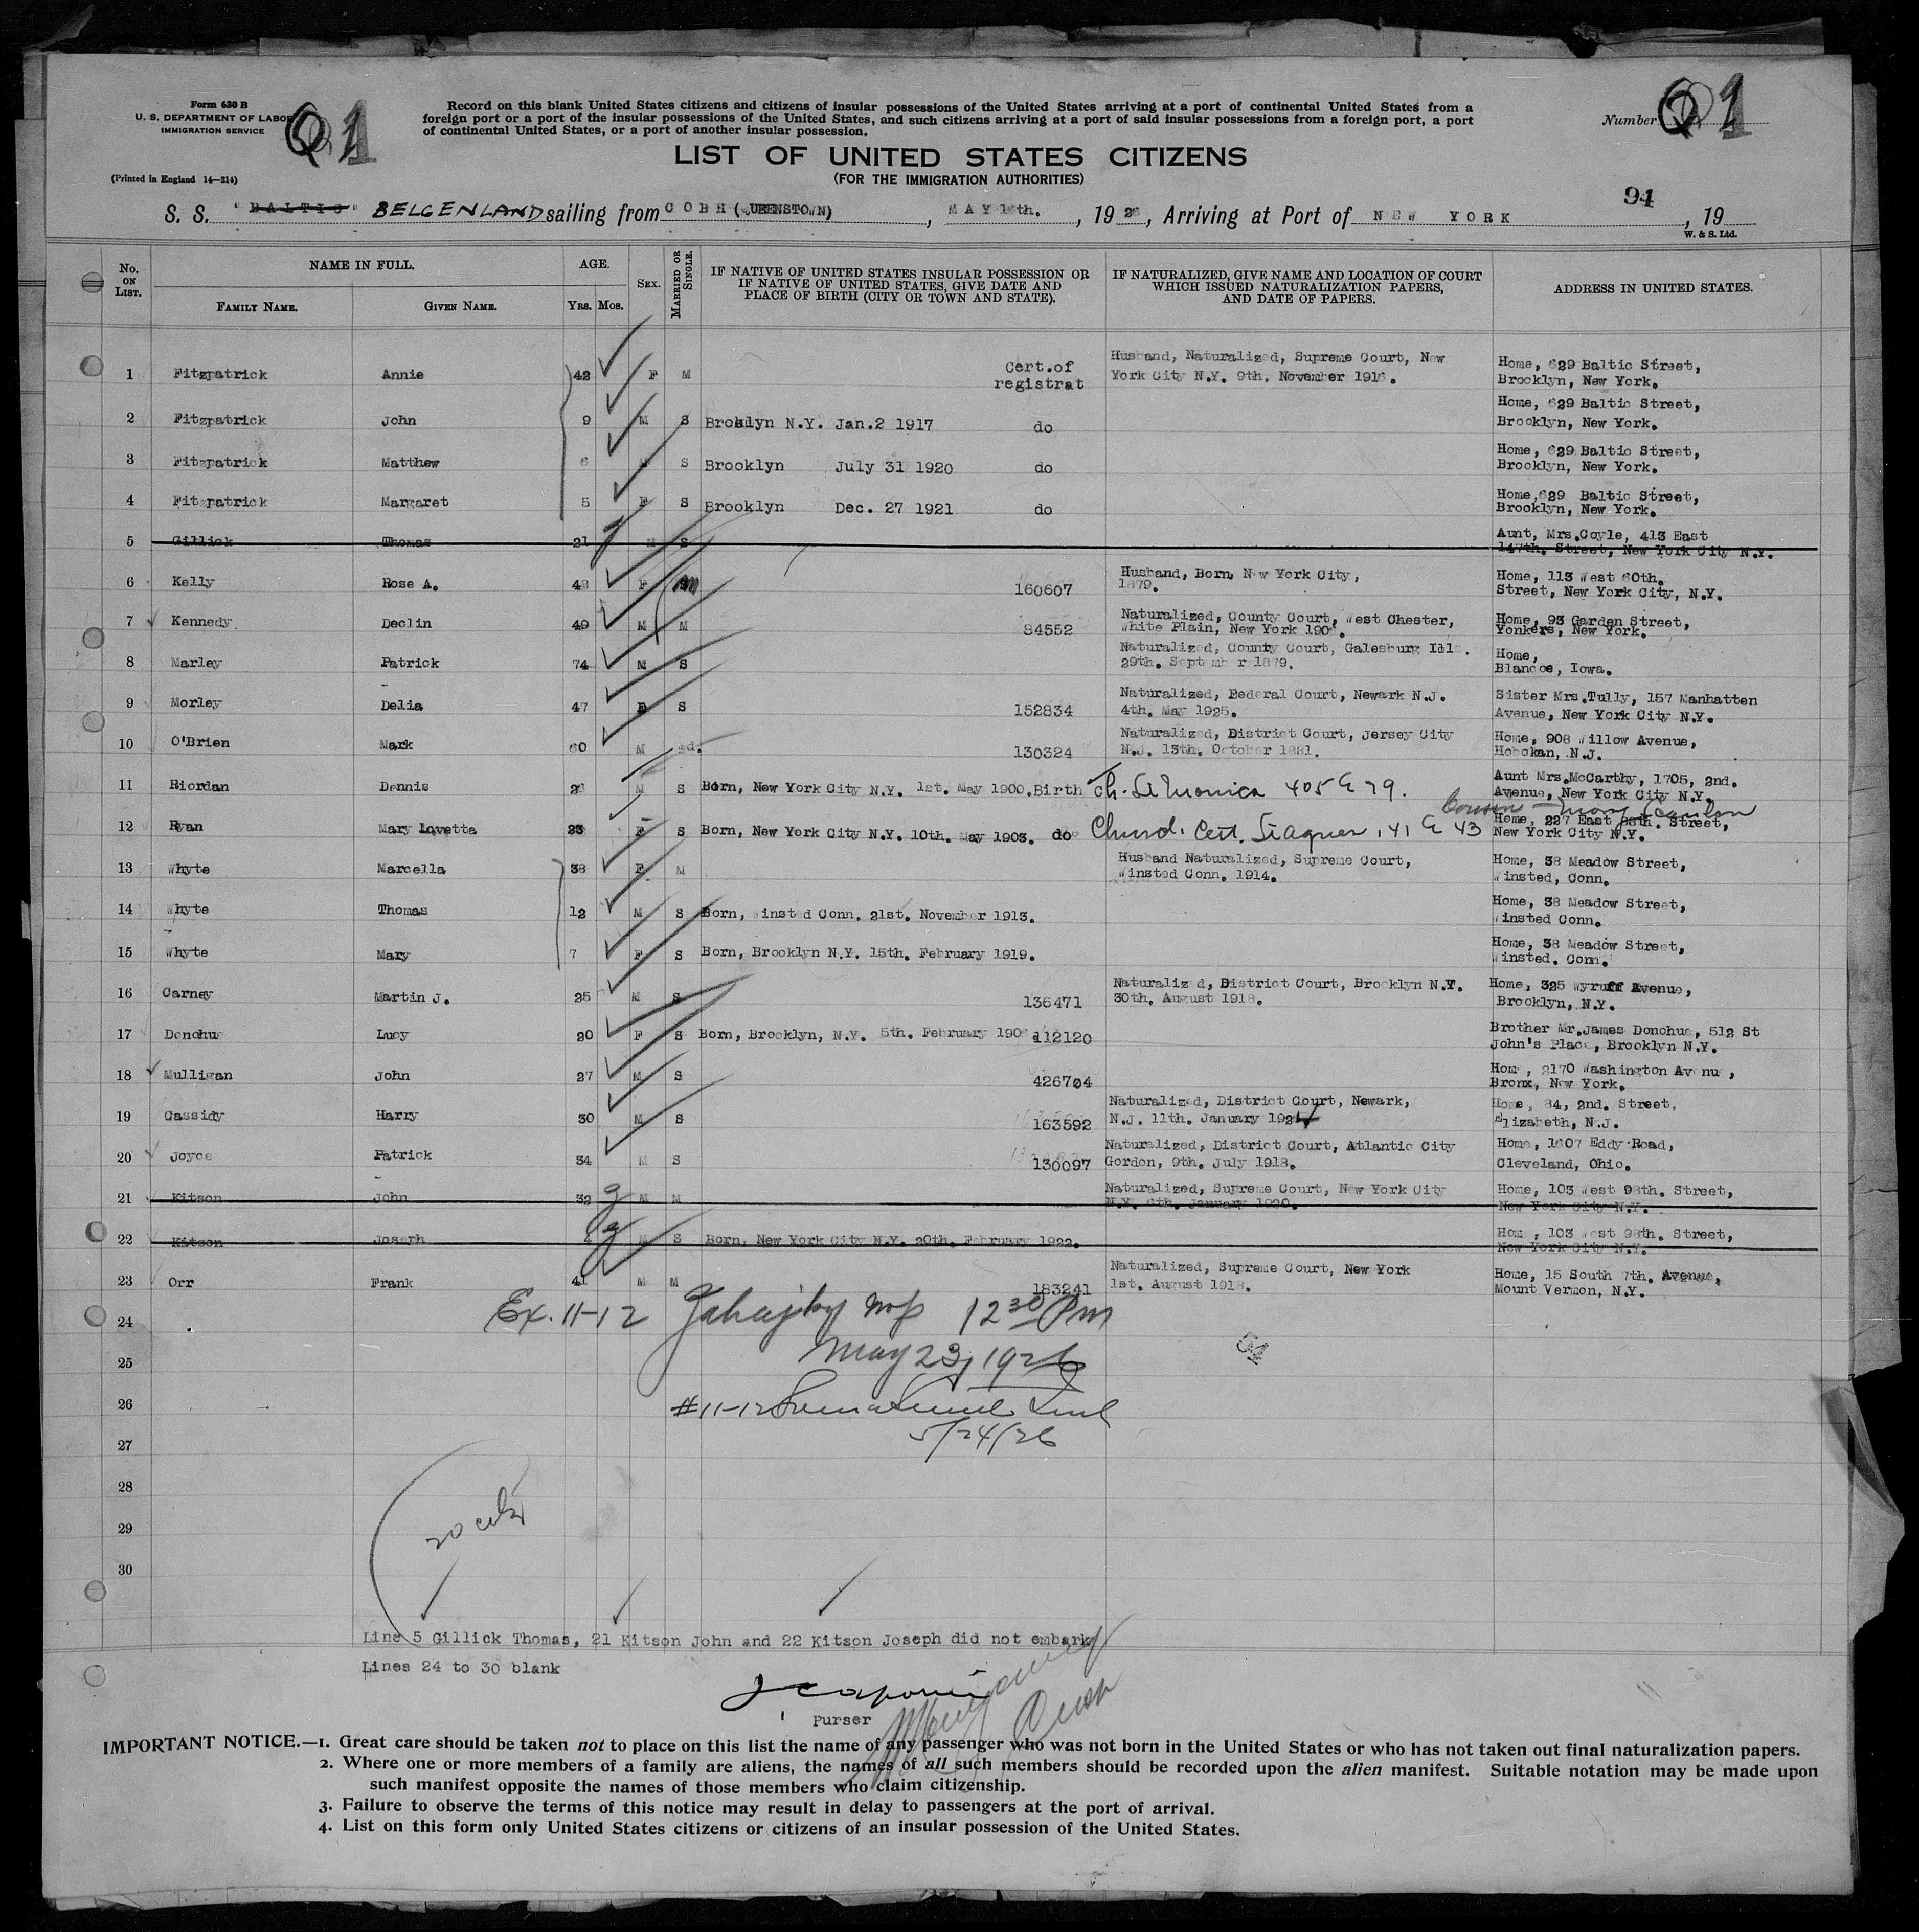 Form 630 B
U. S. DEPARTMENT OF LABOR
IMMIGRATION SERVICE
(Printed in England 14—214)
Record on this blank United States citizens and citizens of insular possessions of the United States arriving at a port of continental United States from a
foreign port or a port of the insular possessions of the United States, and such citizens arriving at a port of said insular possessions from a foreign port, a port
of continental United States, or a port of another insular possession.
Number
LIST OF UNITED STATES CITIZENS
(FOR THE IMMIGRATION AUTHORITIES)
91
S. S. "BALTIC" BELGENLAND sailing from COBH (QUEENSTOWN), MAY th. , 1926, Arriving at Port of NEW YORK , 19
W. & S. Ltd.
No. ON LIST. NAME IN FULL. FAMILY NAME. GIVEN NAME. AGE. YRS. MOS. SEX. MARRIED OR SINGLE. IF NATIVE OF UNITED STATES INSULAR POSSESSION OR IF NATIVE OF UNITED STATES, GIVE DATE AND PLACE OF BIRTH (CITY OR TOWN AND STATE). IF NATURALIZED, GIVE NAME AND LOCATION OF COURT WHICH ISSUED NATURALIZATION PAPERS, AND DATE OF PAPERS. ADDRESS IN UNITED STATES.
1 Fitzpatrick Annie 42 F M Cert.of registrat Husband, Naturalized, Supreme Court, New York City N.Y. 9th. November 1916. Home, 629 Baltic Street, Brooklyn, New York.
2 Fitzpatrick John 9 M S Brooklyn N.Y. Jan.2 1917 do Home, 629 Baltic Street, Brooklyn, New York.
3 Fitzpatrick Matthew 6 M S Brooklyn July 31 1920 do Home, 629 Baltic Street, Brooklyn, New York.
4 Fitzpatrick Margaret 5 F S Brooklyn Dec. 27 1921 do Home, 629 Baltic Street, Brooklyn, New York.
5 Gillick Thomas 21 M S Aunt, Mrs.Coyle, 413 East 147th. Street, New York City N.Y.
6 Kelly Rose A. 48 F M 160607 Husband, Born, New York City, 1879. Home, 113 West 60th. Street, New York City, N.Y.
7 Kennedy Declin 49 M M 84552 Naturalized, County Court, West Chester, White Plain, New York Home, 93 Garden Street, Yonkers, New York.
8 Marley Patrick 74 M S Naturalized, County Court, Galesburg Ills. 29th. September 1879. Home, Blancoe, Iowa.
9 Morley Delia 47 F S 152834 Naturalized, Federal Court, Newark N.J. 4th. May 1925. Sister Mrs.Tully, 157 Manhatten Avenue, New York City N.Y.
10 O'Brien Mark 60 M 130324 Naturalized, District Court, Jersey City N.J. 13th. October 1881. Home, 908 Willow Avenue, Hoboken, N.J.
11 Riordan Dennis 26 M S Born, New York City N.Y. 1st. May 1900. Birth Ch. St Monica 405 E 79. Aunt Mrs.McCarthy, 1705, 2nd. Avenue, New York City N.Y.
Cousin - Mary Scanlon
12 Ryan Mary Lovetta 23 F S Born, New York City N.Y. 10th. May 1903. do Church Cert. St Agnes, 41 E 43 Home, 227 East Street, New York City N.Y.
13 Whyte Marcella 38 F M Husband Naturalized, Supreme Court, Winsted Conn. 1914. Home, 38 Meadow Street, Winsted, Conn.
14 Whyte Thomas 12 M S Born, Winsted Conn. 21st. November 1913. Home, 38 Meadow Street, Winsted Conn.
15 Whyte Mary 7 F S Born, Brooklyn N.Y. 15th. February 1919. Home, 38 Meadow Street, Winsted. Conn.
16 Carney Martin J. 25 M S 136471 Naturalized, District Court, Brooklyn N.Y. 30th. August 1918. Home, 325 Wyruff Avenue, Brooklyn, N.Y.
17 Donohue Lucy 20 F S Born, Brooklyn, N.Y. 5th. February 1906 112120 Brother Mr.James Donohue, 512 St John's Place, Brooklyn N.Y.
18 Mulligan John 27 M S 426704 Home, 2170 Washington Avenue, Bronx, New York.
19 Cassidy Harry 30 M S 163592 Naturalized, District Court, Newark, N.J. 11th. January 192 Home, 84, 2nd. Street, Elizabeth, N.J.
20 Joyce Patrick 34 M S 130097 Naturalized, District Court, Atlantic City Gordon, 9th. July 1918. Home, 1607 Eddy Road, Cleveland, Ohio.
21 Kitson John 32 M M Naturalized, Supreme Court, New York City N.Y. 6th. January 1920. Home, 103 West 98th. Street, New York City N.Y.
22 Kitson Joseph 4 M S Born, New York City N.Y. 20th. February 1922. Home, 103 West 98th. Street, New York City N.Y.
23 Orr Frank 41 M M 183241 Naturalized, Supreme Court, New York 1st. August 1918. Home, 15 South 7th. Avenue, Mount Vernon, N.Y.
24 Ex. 11-12 12 30 Pm
25 May 23, 1926
26 #11-12
27 5/24/26
28
29
30
Line 5 Gillick Thomas, 21 Kitson John and 22 Kitson Joseph did not embark
Lines 24 to 30 blank
Purser
IMPORTANT NOTICE.—1. Great care should be taken not to place on this list the name of any passenger who was not born in the United States or who has not taken out final naturalization papers.
2. Where one or more members of a family are aliens, the names of all such members should be recorded upon the alien manifest. Suitable notation may be made upon
such manifest opposite the names of those members who claim citizenship.
3. Failure to observe the terms of this notice may result in delay to passengers at the port of arrival.
4. List on this form only United States citizens or citizens of an insular possession of the United States.